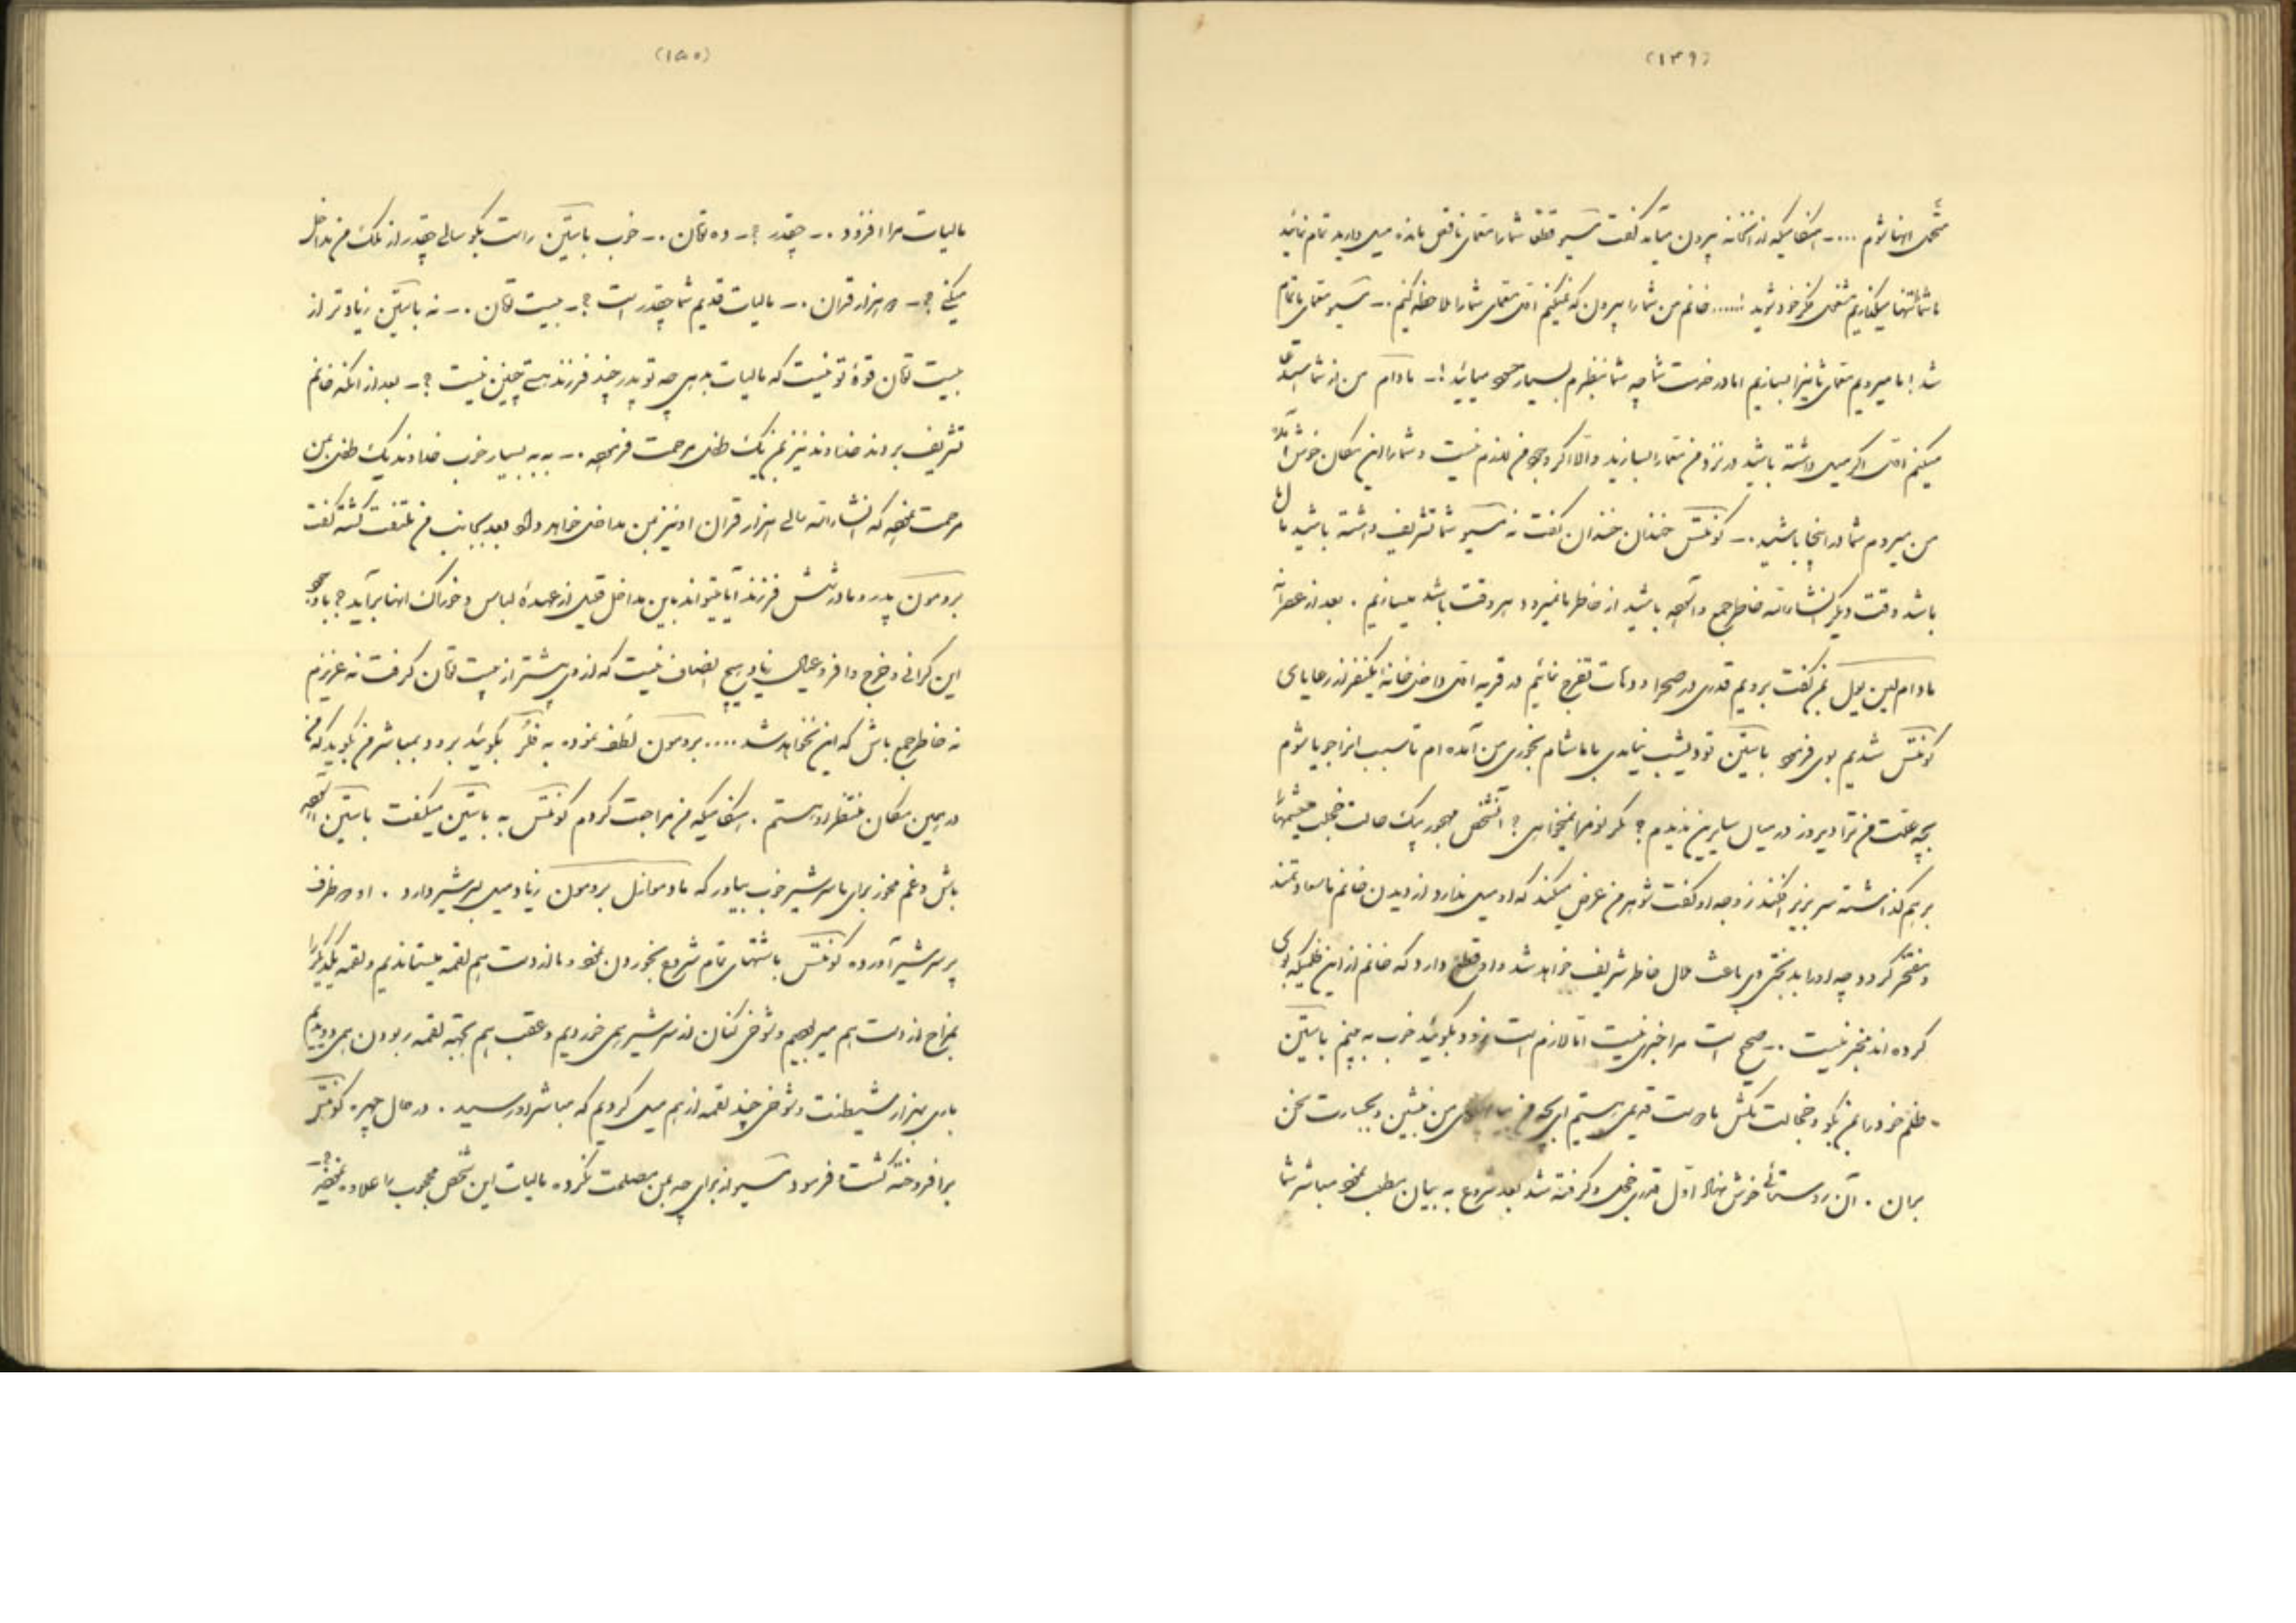 (۱۴۹)
متحمل اینها شوم .... ـ هنگامیکه از آنخانه بیرون میآمد گفت مسیو قتقا شما را معمای ناقص مانده میل دارید تمام نمائید
ما شما را تنها میگذاریم مشغول فکر خود شوید !..... خانم من شما را بیرون که نمیکنم معمای شما را ملاحظه کنیم .ـ مسیو معمای ما تمام
شد ! ما میرویم معمای شما نیز را بسازیم اما در خدمت شما چه شما بنظرم بسیار میآئید !ـ مادام من از شما استدعا
میکنم اگر میل داشته باشید در نزد من معما را بسازید والا اگر وجود من لازم نیست و شما را این مکان خوش آمده
من میروم شما در اینجا باشید .ـ کونتس خندان خندان گفت نه مسیو شما تشریف داشته باشید ما
باشد وقت دیگر انشاءالله خاطر جمع باشید از خاطر ما نمیرود هر وقت باشد میسازیم . بعد از عصرانه
مادام لین یول بمن گفت برویم قدری در صحرا و دهات تفرج نمائیم در قریه داخل خانه یکنفر از رعایای
کونتس شدیم بوی فرمود باستین تو دیشب نیامدی با ما شام بخوری من آمده ام تا سبب انرا جویا شوم
بچه علت من ترا دیروز در میان سایرین ندیدم ؟ مگر تو مرا نمیخواهی ؟ آنشخص مهجور بیک حالت خجلت چشمها را
بر هم گذاشته سر بزیر افکند زوجه او گفت شوهر من عرض میکند که او میل ندارد از دیدن خانم ما سعادتمند
و مفتخر گردد چه او را بدبختی وی باعث ملال خاطر شریف خواهد شد و او قطع دارد که خانم از این ظلمیکه بوی
کرده اند مخبر نیست .ـ صحیح است مرا خبری نیست اما لازم است زود بگوئید خوب به بینم باستین
ـ ظلم خود را بمن بگو و خجالت مکش ما دوست قدیمی هستیم ای بچه من من بنشین و بجسارت سخن
بران . آن روستائی خوش نهاد اول قدری خجل و گرفته شد بعد شروع به بیان مطلب نمود مباشر شما
(۱۵۰)
مالیات مرا افزود .ـ چقدر ؟ـ ده تومان .ـ خوب باستین راست بگو سالی چقدر از ملک من مداخل
میکنی ؟ـ دو هزار قران .ـ مالیات قدیم شما چقدر است ؟ـ بیست تومان .ـ نه باستین زیادتر از
بیست تومان قوه تو نیست که مالیات بدهی چه تو پدر چند فرزند هستی چنین نیست ؟ـ بعد از آنکه خانم
تشریف بردند خداوند نیز بمن یک طفل مرحمت فرمود .ـ به به بسیار خوب خداوند یک طفل بمن
مرحمت نمود که انشاءالله سالی هزار قران او نیز بمن مداخل خواهد داد بعد بجانب من ملتفت گشته گفت
برومون پدر و مادر شش فرزند آیا میتواند باین مداخل قلیل از عهدهٔ لباس و خوراک اینها برآید ؟ با وجود
این گرانی و خرج وافر و عیال زیاد هیچ انصاف نیست که از وی بیشتر از بیست تومان گرفت نه عزیزم
نه خاطر جمع باش که این نخواهد شد .... برومون لطف نموده به فلر بگوئید برود بمباشر من بگوید که من
در همین مکان منتظر او هستم . هنگامیکه من مراجعت کردم کونتس به باستین میگفت باستین آسوده
باش و غم مخور برای ما سرشیر خوب بیاور که مادموازل برومون زیاد میل بسرشیر دارد . او دو ظرف
پر سرشیر آورده کونتس باشتهای تمام شروع بخوردن نمود و ما از دست هم لقمه میستاندیم و لقمه یکدیگر را
بمزاح از دست هم میربودیم و شوخی کنان از سرشیر همی خوردیم و عقب هم بجهة لقمه ربودن همی دویدیم
باری بهزار شیطنت و شوخی چند لقمه از هم میل کردیم که مباشر او رسید . در حال چهره کونتس
برافروخته گشت فرمود مسیو از برای چه بمن مصلحت نکرده مالیات این شخص محجوب را علاوه نمودید ؟ـ